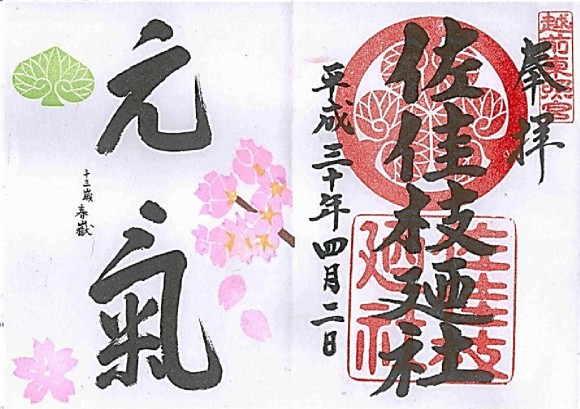 越前東照宮
奉拝
佐佳枝廼社
佐佳枝廼社
平成三十年四月二日
元氣
十三歳 春嶽